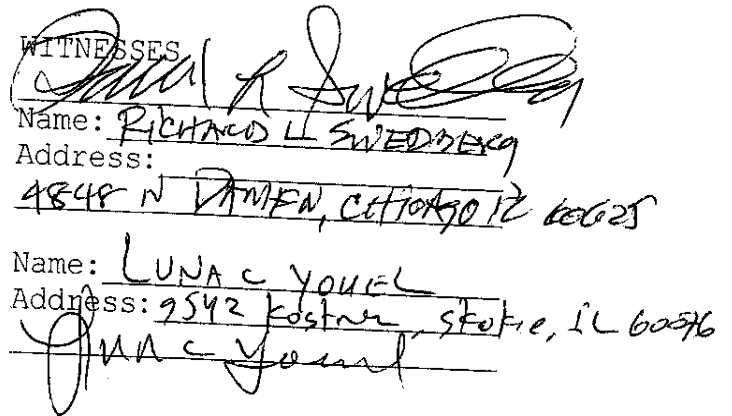 WITNESSES
Name: RICHARD L SWEDBERG
Address:
4848 N DAMEN, CHICAGO IL 60625
Name: LUNA C YOUEL
Address: 9542 Kostner, Skokie, IL 60076
Luna C Youel